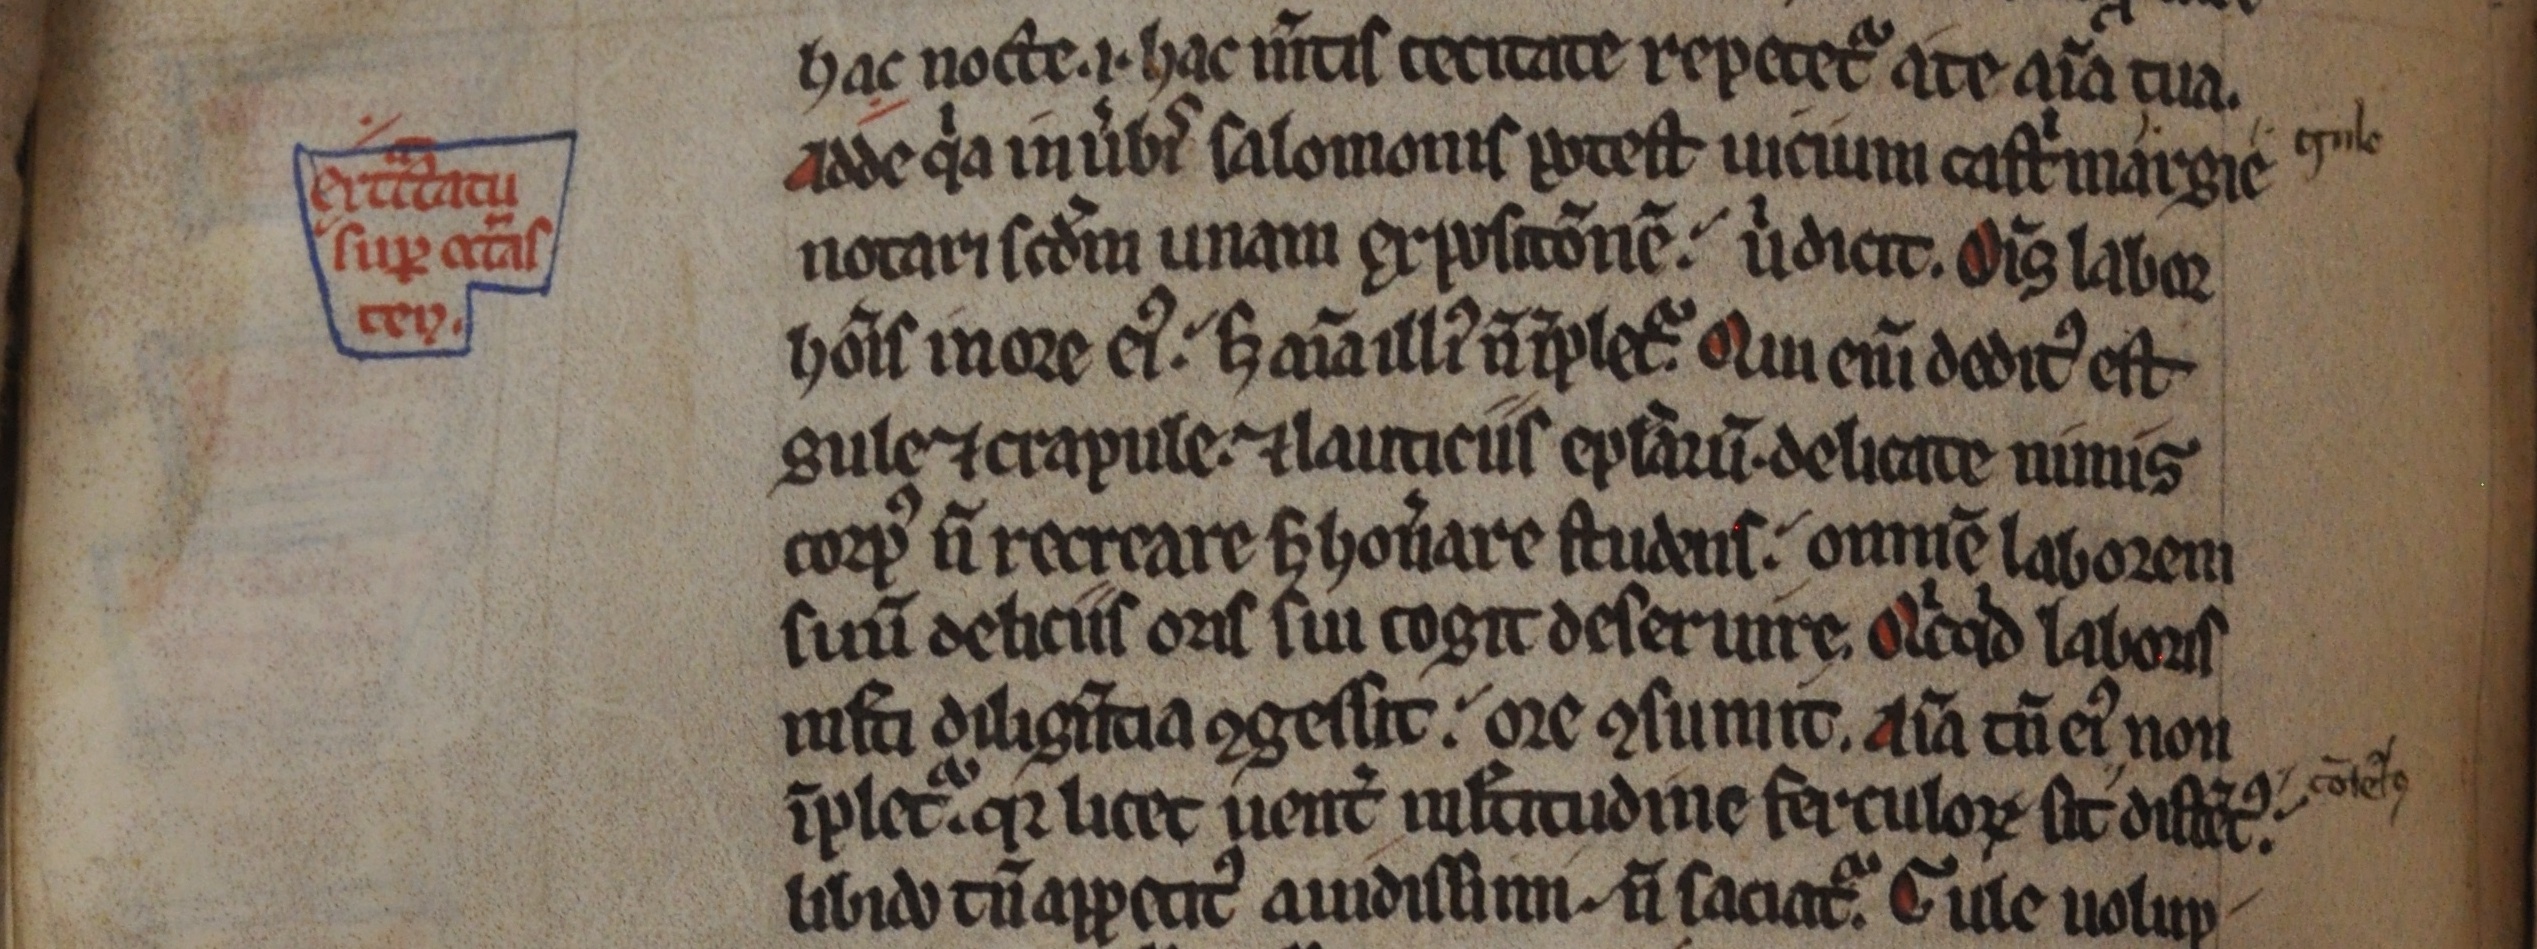 ex tͣctatu
suꝑ ecc̄as
ten.
hac nocte .i. hac m̄tis cecitate repetetᷓ a te aīa tua.
Adde qͥa in ūbis salomonis potest uicium castͥmargie
gule
notari scd̄m unam expositōnē. ut̓ dicit. Om̄s labor
hōis in ore eiꝰ. ꞩ aīa illiꝰ n̄ īpletᷓ. Qui eni̅ deditꝰ est
gule ⁊ crapule. ⁊ lauticiis epl̄arū. delicate nimis
corpꝰ n̄ recreare ꞩ honͥare studens. omnē laborem
suū deliciis oris sui cogit deseruire. Qͥcqͥd laboris
ml̄ta dilign̄tia ꝯgessit. ore ꝯsumit. Aīa tn̄ eiꝰ non
īpletᷓ. qꝛ licet uent̄ ml̄titudine ferculoꝝ sit distētꝰ.
libido tn̄ appetitꝰ auidissimi n̄ saciatᷓ. Gule uolup